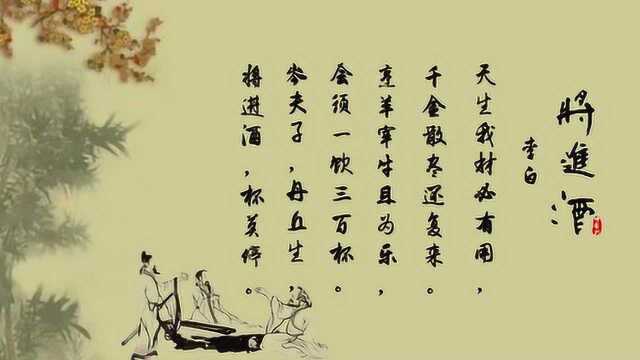 將進酒
李白
天生我材必有用，
千金散尽还复来。
烹羊宰牛且为乐，
会须一饮三百杯。
岑夫子，丹丘生，
将进酒，杯莫停。